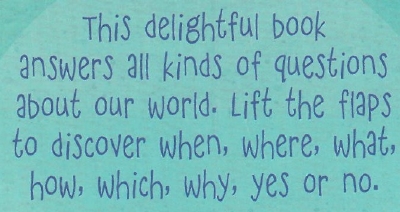 This delightful book
answers all kinds of questions
about our world. Lift the flaps
to discover when, where, what,
how, which, why, yes or no.